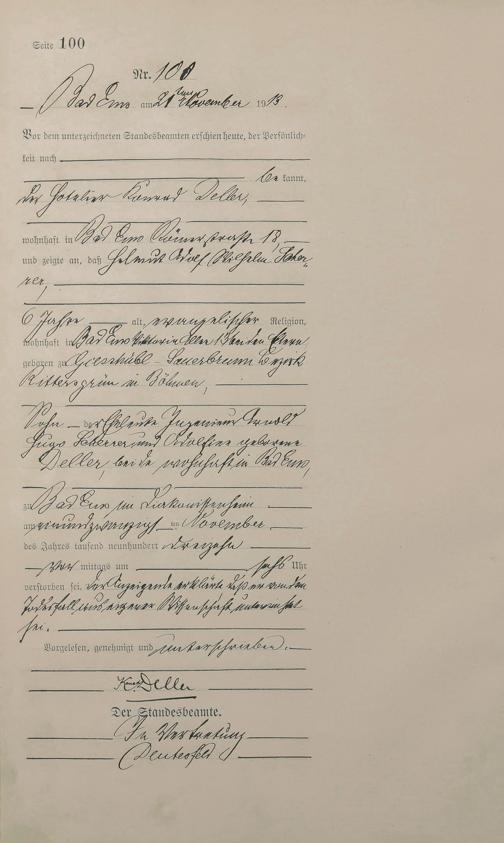 Seite 100
Nr. 100
Bad Ems am 21ten November 1913.
Vor dem unterzeichneten Standesbeamten erschien heute, der Persönlich-
keit nach
be kannt,
der Hotelier Konrad Deller,
wohnhaft in Bad Ems Römerstraße 18,
und zeigte an, daß Helmut Adolf Wilhelm Scher-
rer,
6 Jahre alt, evangelischer Religion,
wohnhaft in Bad Ems bei den Eltern
geboren zu Gieshübl-Sauerbrunn Bezirk
in Böhmen,
Sohn der Eheleute Ingenieur Arnold
Hugo Scherrer und Adolfine geborene
Deller, beide wohnhaft in Bad Ems,
zu Bad Ems im Diakonissenheim
am einundzwanzigst en November
des Jahres tausend neunhundert dreizehn
Vor mittags um sechs Uhr
verstorben sei. Der Anzeigende erklärte daß er von dem
Todesfall aus eigener Wissenschaft unterrichtet
sei.
Vorgelesen, genehmigt und unterschrieben.
K. Deller
Der Standesbeamte.
In Vertretung